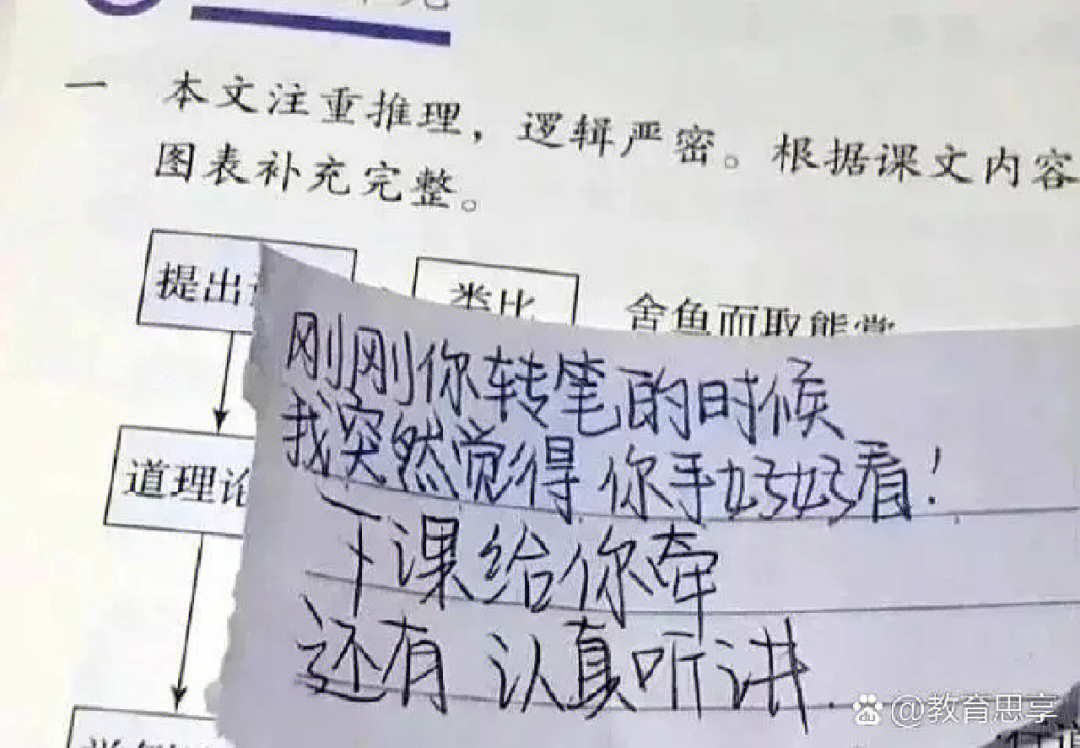 一 本文注重推理，逻辑严密。根据课文内容
图表补充完整。
提出
类比
舍鱼而取熊掌
道理论
刚刚你转笔的时候
我突然觉得 你手好好看！
下课给你牵
还有 认真听讲.
@教育思享